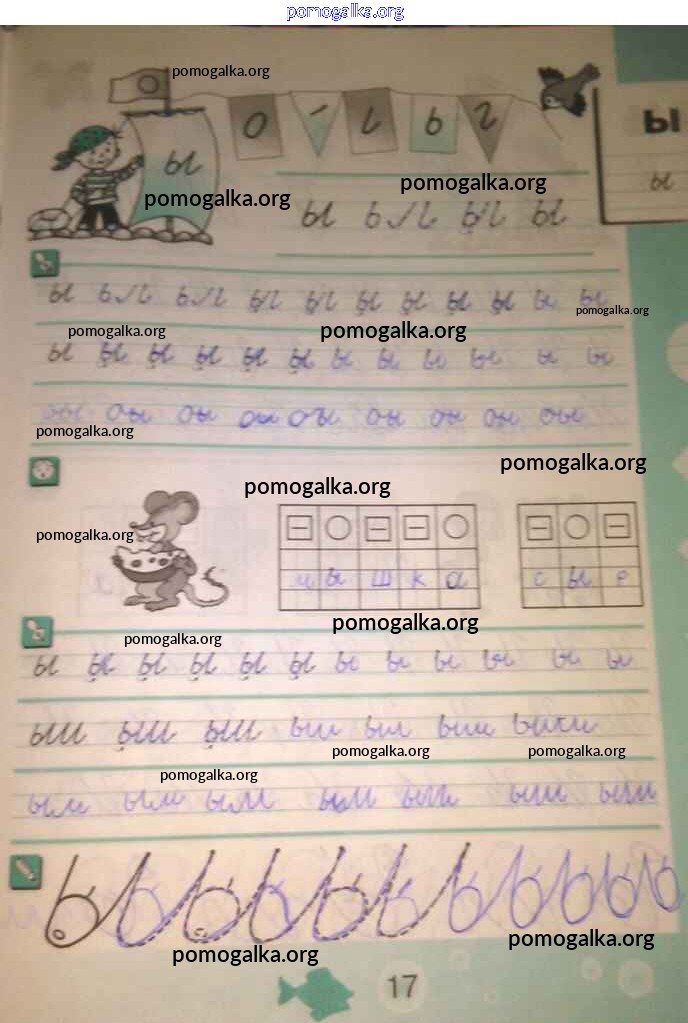 pomogalka.org
pomogalka.org
о - ι ь г
ы
Ы
ы
pomogalka.org
pomogalka.org
ы ы ы
ы ы ы ы ы ы ы
pomogalka.org
pomogalka.org
pomogalka.org
ы ы ы ы ы ы ы ы ы ы ы ы
оы оы оы оы оы оы оы оы
pomogalka.org
pomogalka.org
pomogalka.org
pomogalka.org
м ы ш к а
с ы р
pomogalka.org
pomogalka.org
ы ы ы ы ы ы ы ы ы ы ы ы
ыш ыш ыш ыш
pomogalka.org
pomogalka.org
pomogalka.org
pomogalka.org
pomogalka.org
17